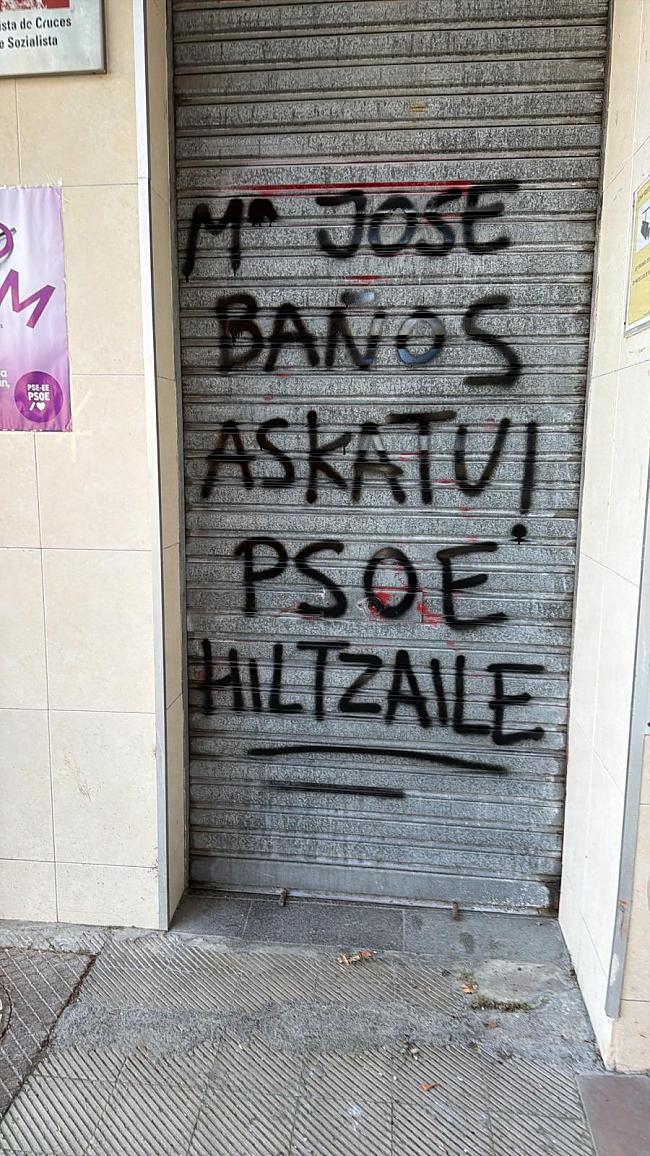 ista de Cruces
e Sozialista
Mª JOSE
BAÑOS
ASKATU!
PSOE
HILTZAILE
M
PSE-EE
PSOE